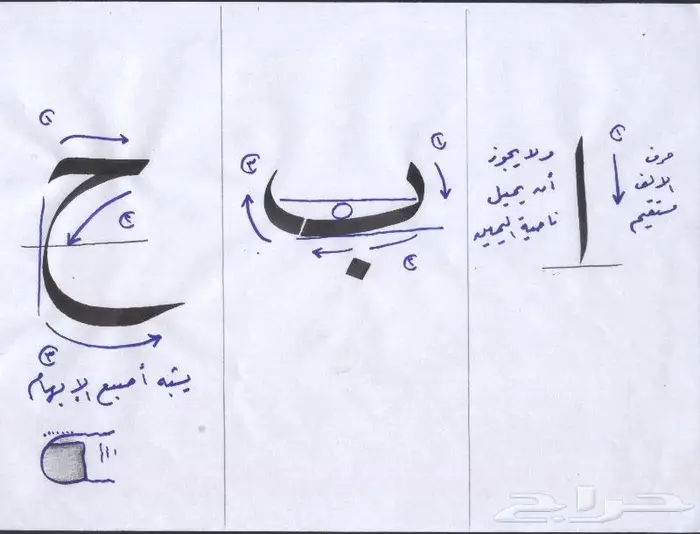 ١
حرف
الالف
مستقيم
ا
ولا يجوز
أن يميل
ناحية اليمين
١
٣
ب
٢
١
ح
٢
٣
يشبه أصبع الإبهام
حراج